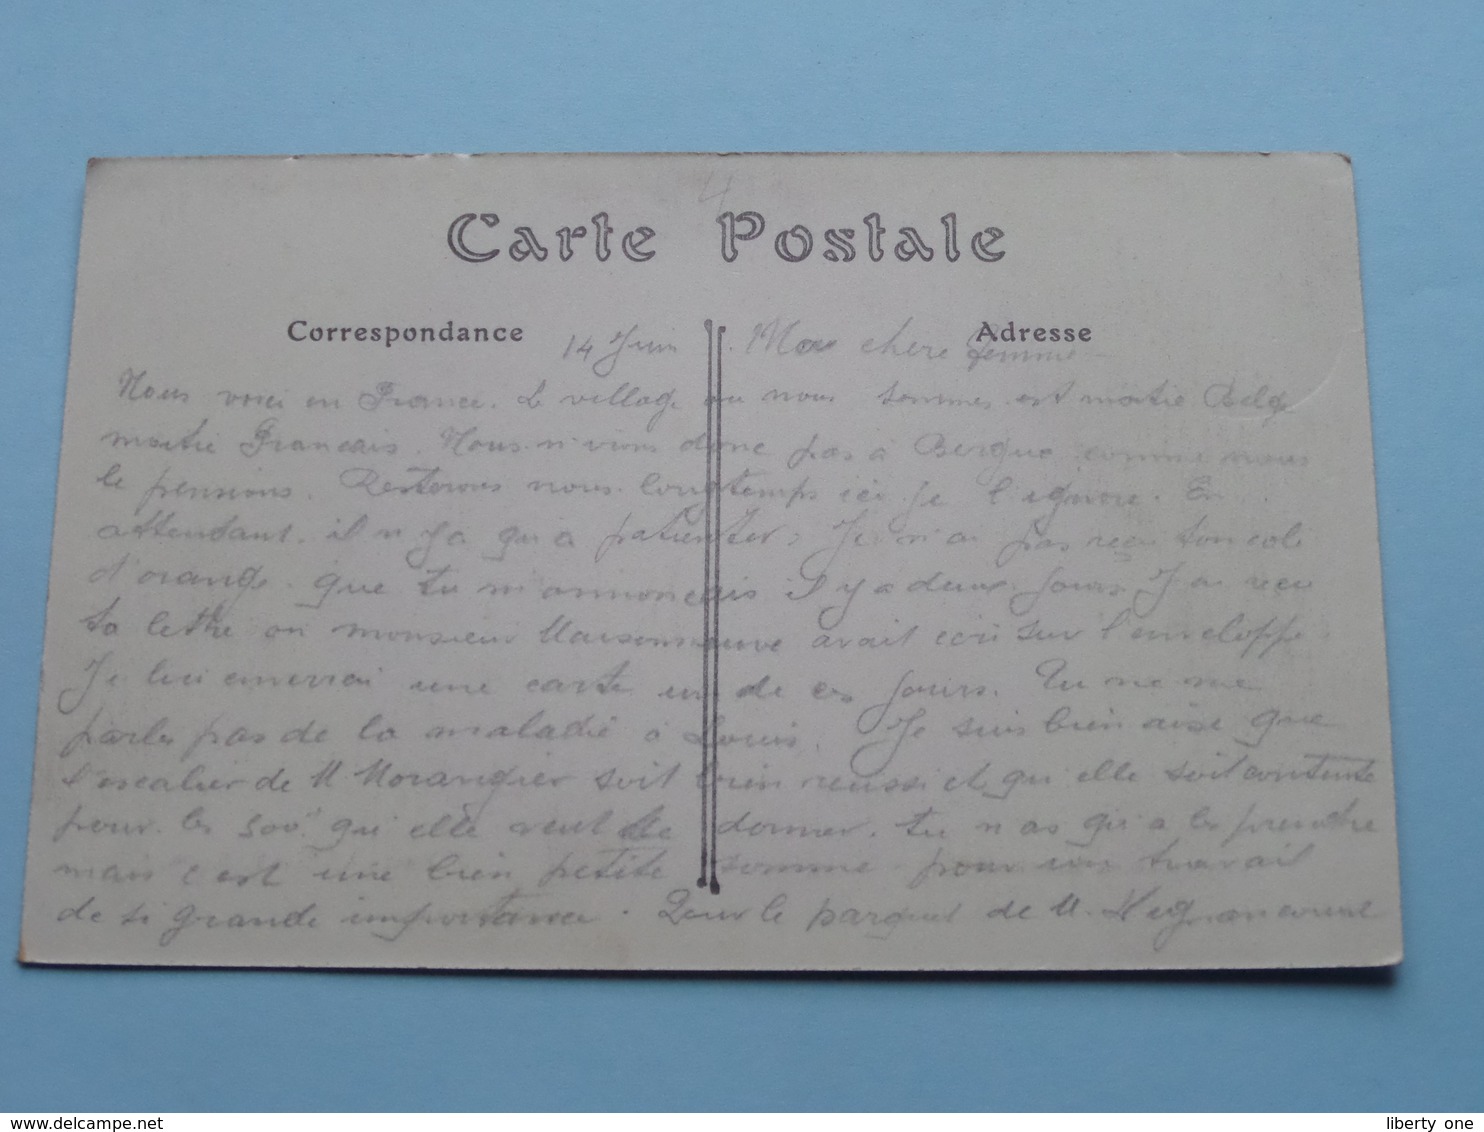 4
Carte Postale
Correspondance
Adresse
14 Juin Ma chere femme
Nous voici en France. Le village ou nous sommes est moitie Belge
moitie Francais. Nous n'irons donc pas à Bergue comme nous
le pensions. Resterons nous longtemps ici je l'ignore. En
attendant il n'y a qu'a patienter. Je n'ai pas recu ton colis
d'orange que tu m'annoncais il y a deux jours. J'ai recu
ta lettre ou monsieur Maisonneuve avait ecri sur l'enveloppe
Je lui enverrai une carte un de ces jours. Tu ne me
parles pas de la maladie a Louis. Je suis bien aise que
l'escalier de M Morangier soit bien reussi et qu'elle soit contente
pour les 500f qu'elle veut te donner. tu n as qu'a les prendre
mais c'est une bien petite somme pour un travail
de si grande importance. Pour le parquet de M.
delcampe.net
liberty one